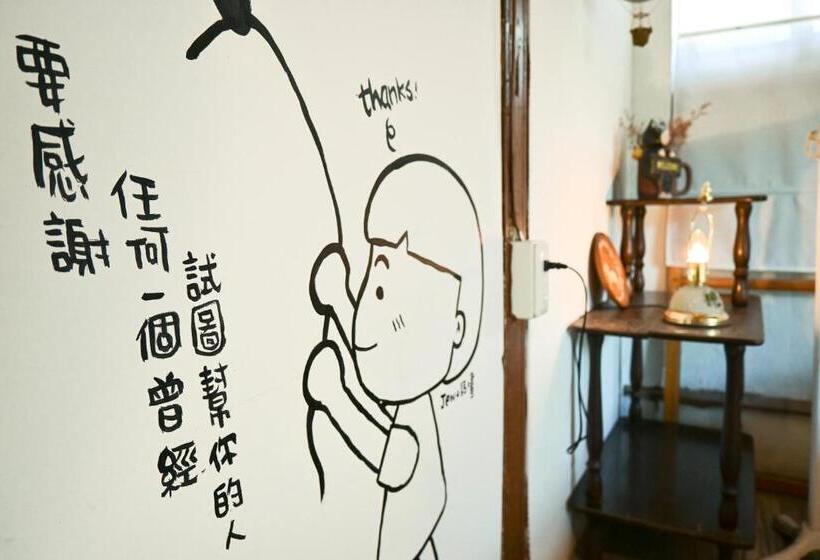 要感謝
任何一個曾經
試圖幫你的人
thanks!